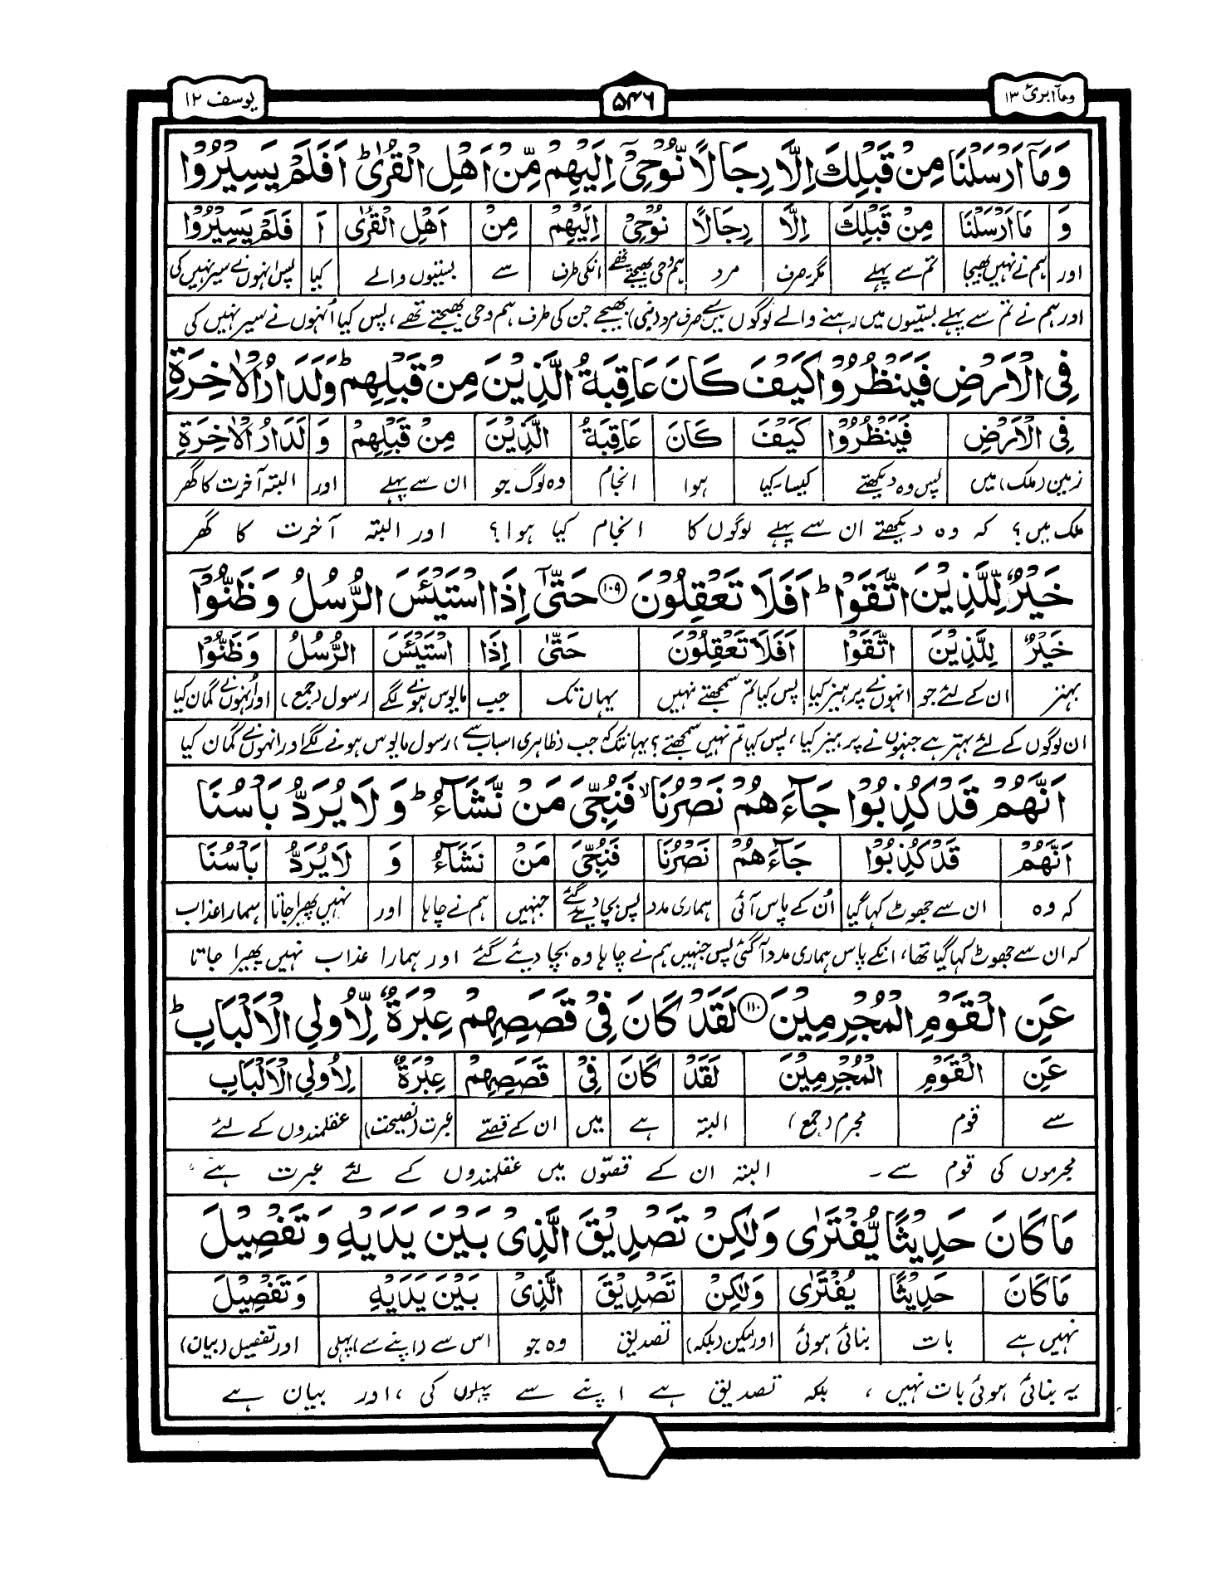 وماۤ ابرئ ۱۳
۵۴۶
یوسف ۱۲
وَمَآ اَرْسَلْنَا مِنْ قَبْلِكَ اِلَّا رِجَالًا نُّوْحِیْٓ اِلَیْهِمْ مِّنْ اَهْلِ الْقُرٰىؕ اَفَلَمْ یَسِیْرُوْا
وَ مَا اَرْسَلْنَا مِنْ قَبْلِكَ اِلَّا رِجَالًا نُوْحِیْ اِلَیْهِمْ مِنْ اَهْلِ الْقُرٰى اَ فَلَمْ یَسِیْرُوْا
اور ہم نے نہیں بھیجا تم سے پہلے مگر۔صرف مرد ہم وحی بھیجتے تھے انکی طرف سے بستیوں والے کیا پس انہوں نے سیر نہیں کی
اور ہم نے تم سے پہلے بستیوں میں رہنے والے لوگوں میں سے صرف مرد (نبی) بھیجے جن کی طرف ہم وحی بھیجتے تھے، پس کیا اُنہوں نے سیر نہیں کی
فِی الْاَرْضِ فَیَنْظُرُوْا كَیْفَ كَانَ عَاقِبَةُ الَّذِیْنَ مِنْ قَبْلِهِمْؕ وَلَدَارُ الْاٰخِرَةِ
فِی الْاَرْضِ فَیَنْظُرُوْا كَیْفَ كَانَ عَاقِبَةُ الَّذِیْنَ مِنْ قَبْلِهِمْ وَ لَدَارُ الْاٰخِرَةِ
زمین (ملک) میں پس وہ دیکھتے کیسا۔کیا ہوا انجام وہ لوگ جو ان سے پہلے اور البتہ آخرت کا گھر
ملک میں؟ کہ وہ دیکھتے ان سے پہلے لوگوں کا انجام کیا ہوا؟ اور البتہ آخرت کا گھر
خَیْرٌ لِّلَّذِیْنَ اتَّقَوْاؕ اَفَلَا تَعْقِلُوْنَ ۱۰۹ حَتّٰٓى اِذَا اسْتَیْئَسَ الرُّسُلُ وَظَنُّوْٓا
خَیْرٌ لِلَّذِیْنَ اتَّقَوْا اَفَلَا تَعْقِلُوْنَ حَتّٰى اِذَا اسْتَیْئَسَ الرُّسُلُ وَظَنُّوْا
بہتر ان کے لئے جو انہوں نے پرہیز کیا پس کیا تم سمجھتے نہیں یہاں تک جب مایوس ہونے لگے رسول (جمع) اور اُنہوں نے گمان کیا
ان لوگوں کے لئے بہتر ہے جنہوں نے پرہیز کیا، پس کیا تم نہیں سمجھتے؟ یہانتک کہ جب (ظاہری اسباب سے) رسول مایوس ہونے لگے اور انہوں نے گمان کیا
اَنَّهُمْ قَدْ كُذِبُوْا جَآءَهُمْ نَصْرُنَاۙ فَنُجِّیَ مَنْ نَّشَآءُؕ وَلَا یُرَدُّ بَاْسُنَا
اَنَّهُمْ قَدْ كُذِبُوْا جَآءَهُمْ نَصْرُنَا فَنُجِّیَ مَنْ نَشَآءُ وَ لَا یُرَدُّ بَاْسُنَا
کہ وہ ان سے جھوٹ کہا گیا اُن کے پاس آئی ہماری مدد پس بچا دیئے گئے جنہیں ہم نے چاہا اور نہیں پھیرا جاتا ہمارا عذاب
کہ ان سے جھوٹ کہا گیا تھا، انکے پاس ہماری مدد آگئی پس جنہیں ہم نے چاہا وہ بچا دیئے گئے اور ہمارا عذاب نہیں پھیرا جاتا
عَنِ الْقَوْمِ الْمُجْرِمِیْنَ ۱۱۰ لَقَدْ كَانَ فِیْ قَصَصِهِمْ عِبْرَةٌ لِّاُولِی الْاَلْبَابِؕ
عَنِ الْقَوْمِ الْمُجْرِمِیْنَ لَقَدْ كَانَ فِیْ قَصَصِهِمْ عِبْرَةٌ لِاُولِی الْاَلْبَابِ
سے قوم مجرم (جمع) البتہ ہے میں ان کے قصّے عبرت (نصیحت) عقلمندوں کے لئے
مجرموں کی قوم سے۔ البتہ ان کے قصّوں میں عقلمندوں کے لئے عبرت ہے،
مَا كَانَ حَدِیْثًا یُّفْتَرٰى وَلٰكِنْ تَصْدِیْقَ الَّذِیْ بَیْنَ یَدَیْهِ وَتَفْصِیْلَ
مَا كَانَ حَدِیْثًا یُفْتَرٰى وَلٰكِنْ تَصْدِیْقَ الَّذِیْ بَیْنَ یَدَیْهِ وَتَفْصِیْلَ
نہیں ہے بات بنائی ہوئی اور لیکن (بلکہ) تصدیق وہ جو اس سے (اپنے سے) پہلی اور تفصیل (بیان)
یہ بنائی ہوئی بات نہیں، بلکہ تصدیق ہے اپنے سے پہلوں کی، اور بیان ہے